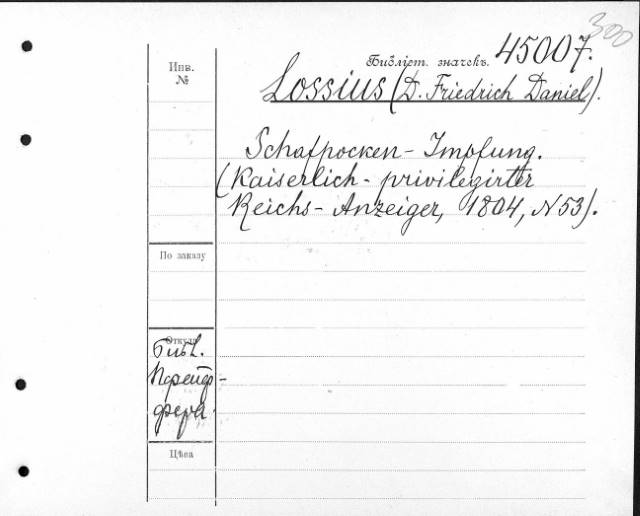 300
Инв.
№
Библіот. значекъ. 45007.
Lossius (D. Friedrich Daniel).
Schafpocken - Impfung.
(Kaiserlich - privilegirter
Reichs - Anzeiger, 1804, N 53).
По заказу
Откуда
Библ.
Пфейф-
фера.
Цѣна